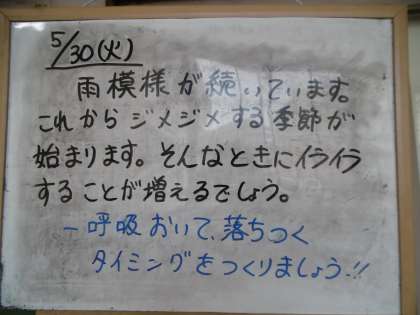 5/30(火)
雨模様が続いています。
これからジメジメする季節が
始まります。そんなときにイライラ
することが増えるでしょう。
一呼吸おいて、落ちつく
タイミングをつくりましょう!!